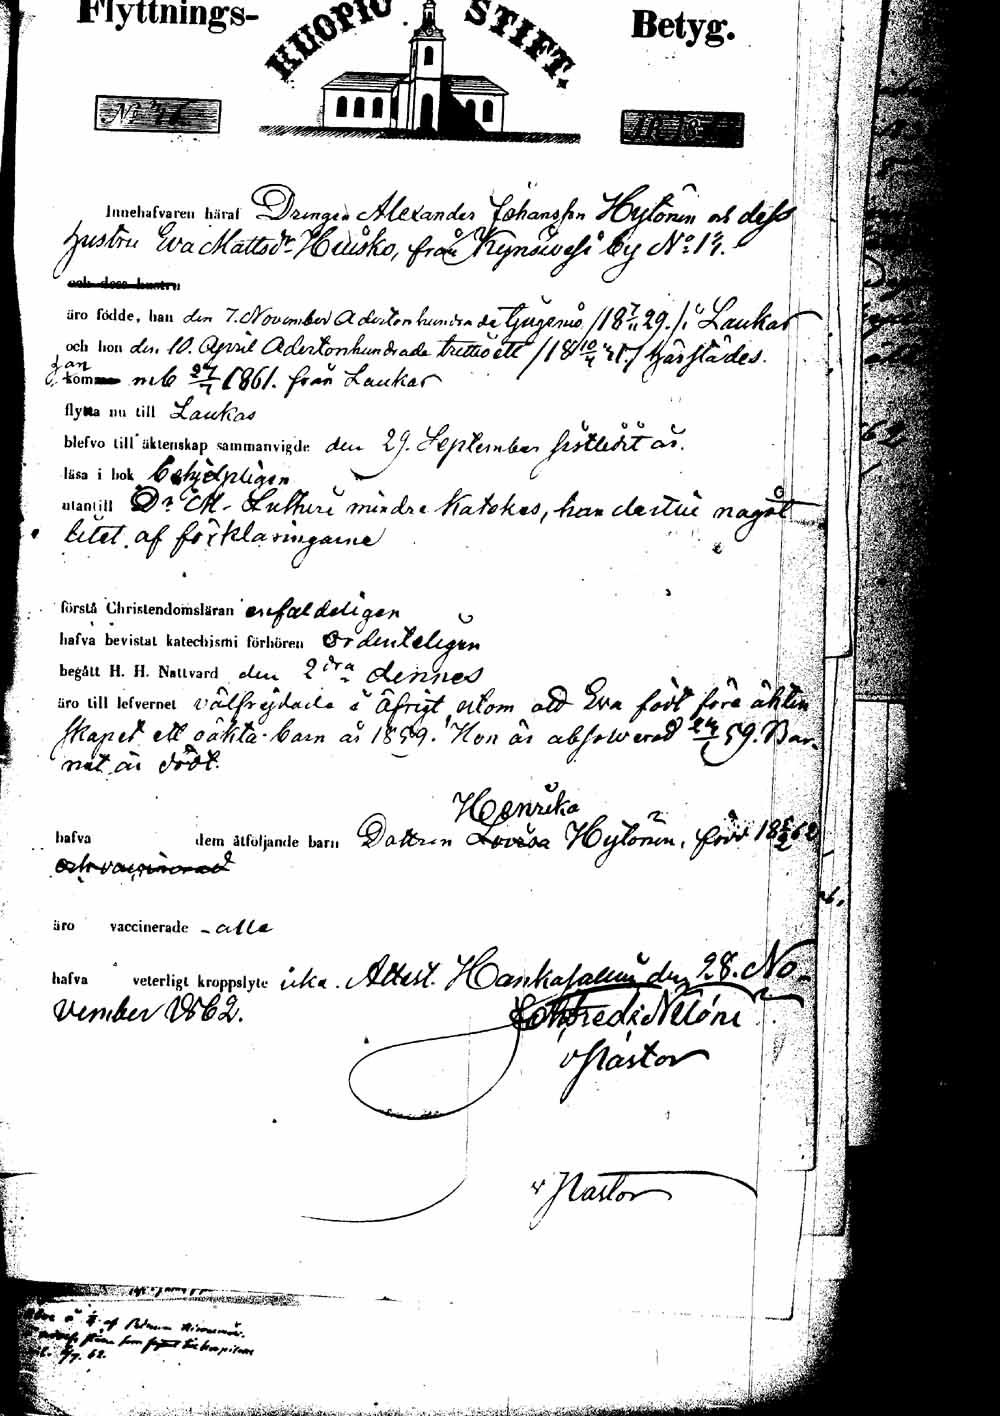 Flyttnings- KUOPIO STIFT. Betyg.
No
Innehafvaren häraf Drengen Alexander Johansson Hytönen och dess
hustru Eva Mattsdr Hiisko, från Kynsivesi by No 17.
och dess hustru
äro födde, han den 7. November Adertonhundrade tjugenio /18 7/11 29./ i Laukas
och hon den 10. April Adertonhundrade trettioett /18 10/4 31./ härstädes.
han
kom mb 27/7 1861. från Laukas
flytta nu till Laukas
blefvo till äktenskap sammanvigde den 29. September sistledit år.
läsa i bok behjelpligen
utantill Dr M. Lutheri mindre Katekes, han dertill något
litet af förklaringarne
förstå Christendomsläran enfaldeligen
hafva bevistat katechismi förhören ordenteligen
begått H. H. Nattvard den 2dra dennes
äro till lefvernet välfrejdade i öfrigt utom att Eva födt före äkten
skapet ett oäkta barn år 1859. Hon är absolverad 59. Bar-
net är dödt.
Henrika
hafva dem åtföljande barn Dottren Lovisa Hytönen, född 18 62
och vaccinerad
äro vaccinerade - alla
hafva veterligt kroppslyte icke. Attest. Hankasalmi den 28. No-
vember 1862.
v Pastor
v Pastor